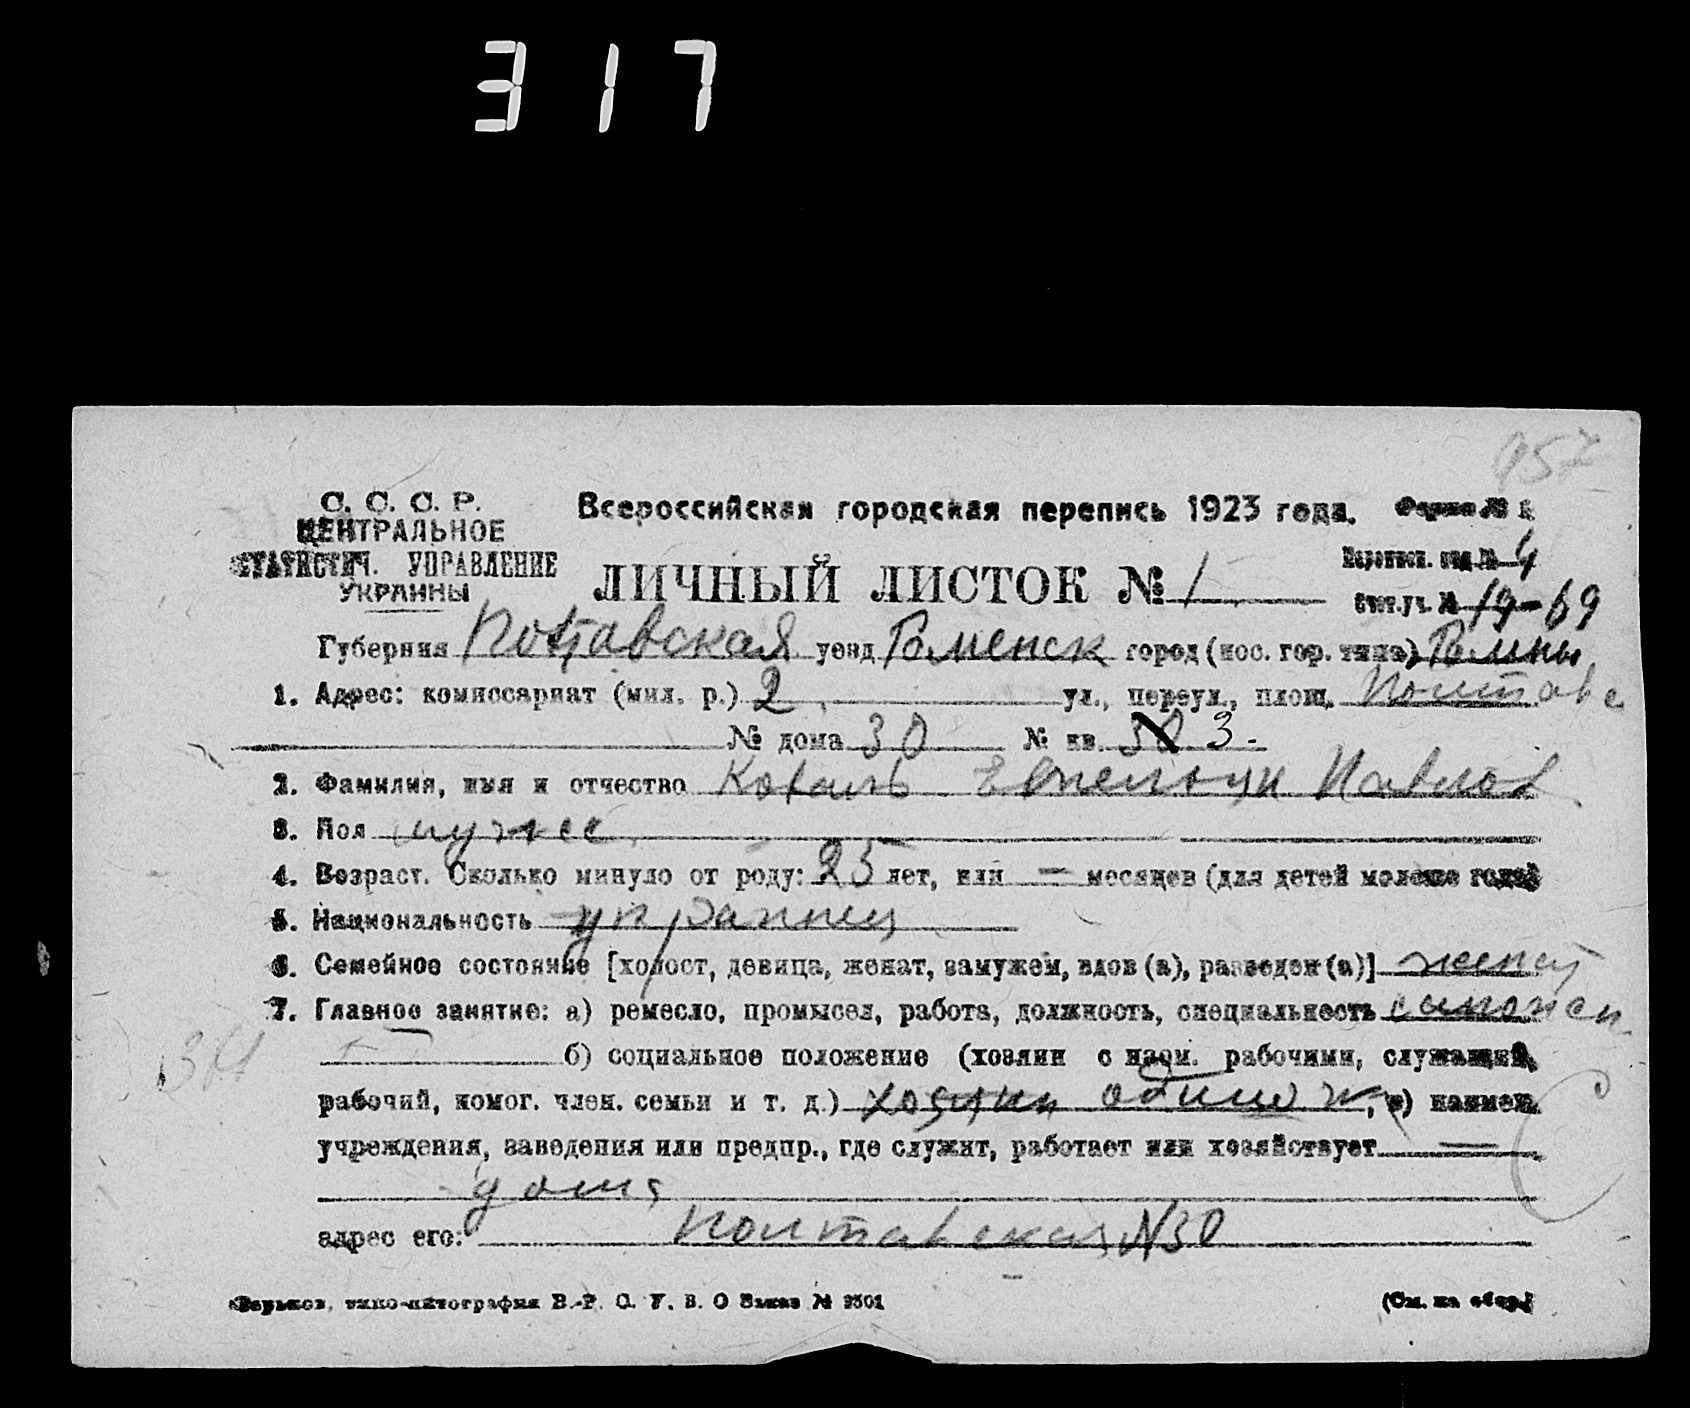 317
957
С. С. С. Р.
ЦЕНТРАЛЬНОЕ
СТАТИСТИЧ. УПРАВЛЕНИЕ
УКРАИНЫ
Всероссийская городская перепись 1923 года.
Форма №
ЛИЧНЫЙ ЛИСТОК № 1
Переписн. отд. № 4
Счет. уч. № 19-69
Губерния Полтавская уезд Роменск город (пос. гор. типа) Ромны
1. Адрес: комиссариат (мил. р.) 2 ул., переул., площ. Полтавс
№ дома 30 № кв. 3.
2. Фамилия, имя и отчество Коваль Павлов
3. Пол мужес
4. Возраст. Сколько минуло от роду: 25 лет, или — месяцев (для детей моложе года)
5. Национальность украинец
6. Семейное состояние [холост, девица, женат, замужем, вдов (а), разведен (а)] женат
7. Главное занятие: а) ремесло, промысел, работа, должность, специальность сапожен
б) социальное положение (хозяин с наем. рабочими, служащий,
рабочий, помог. член. семьи и т. д.) хозяин одиноч, в) наимен.
учреждения, заведения или предпр., где служит, работает или хозяйствует
дома
адрес его: Полтавская №30
Харьков, типо-литография В.-Р. С. У. В. О Заказ № 2301
(См. на обор.)